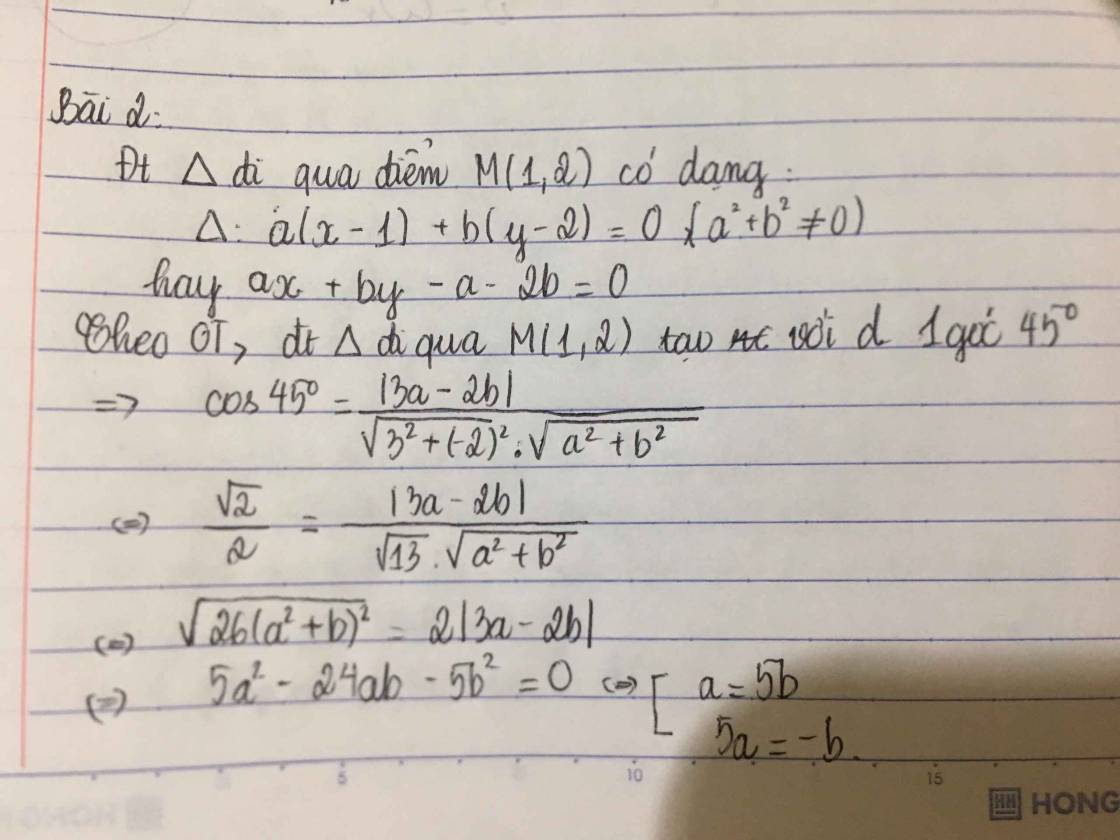 Bài 2:
Đt Δ đi qua điểm M(1,2) có dạng:
Δ: a(x-1) + b(y-2) = 0 (a²+b² ≠ 0)
hay ax + by - a - 2b = 0
Theo ĐT, đt Δ đi qua M(1,2) tạo với d 1 góc 45°
=> cos 45° = |3a - 2b| / √3²+(-2)² . √a²+b²
<=> √2/2 = |3a - 2b| / √13 . √a²+b²
<=> √26(a²+b)² = 2|3a - 2b|
<=> 5a² - 24ab - 5b² = 0 <=> [ a = 5b
5a = -b.
5 10 15
HONG